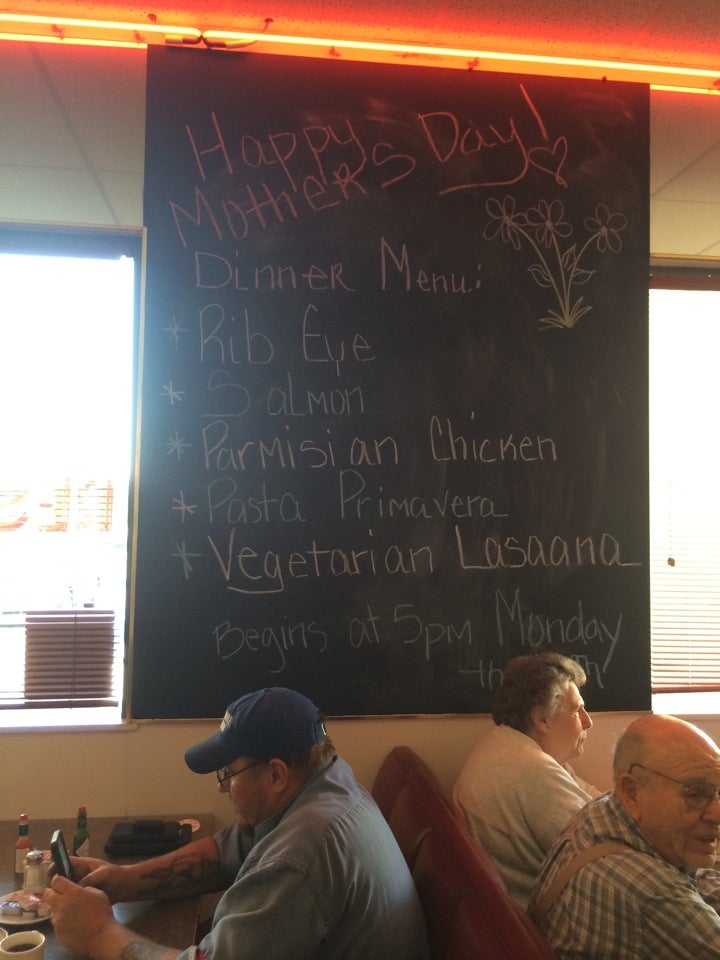 Happy
Mothers Day!
Dinner Menu:
* Rib Eye
* Salmon
* Parmisian Chicken
* Pasta Primavera
* Vegetarian Lasaana
Begins at 5pm Monday